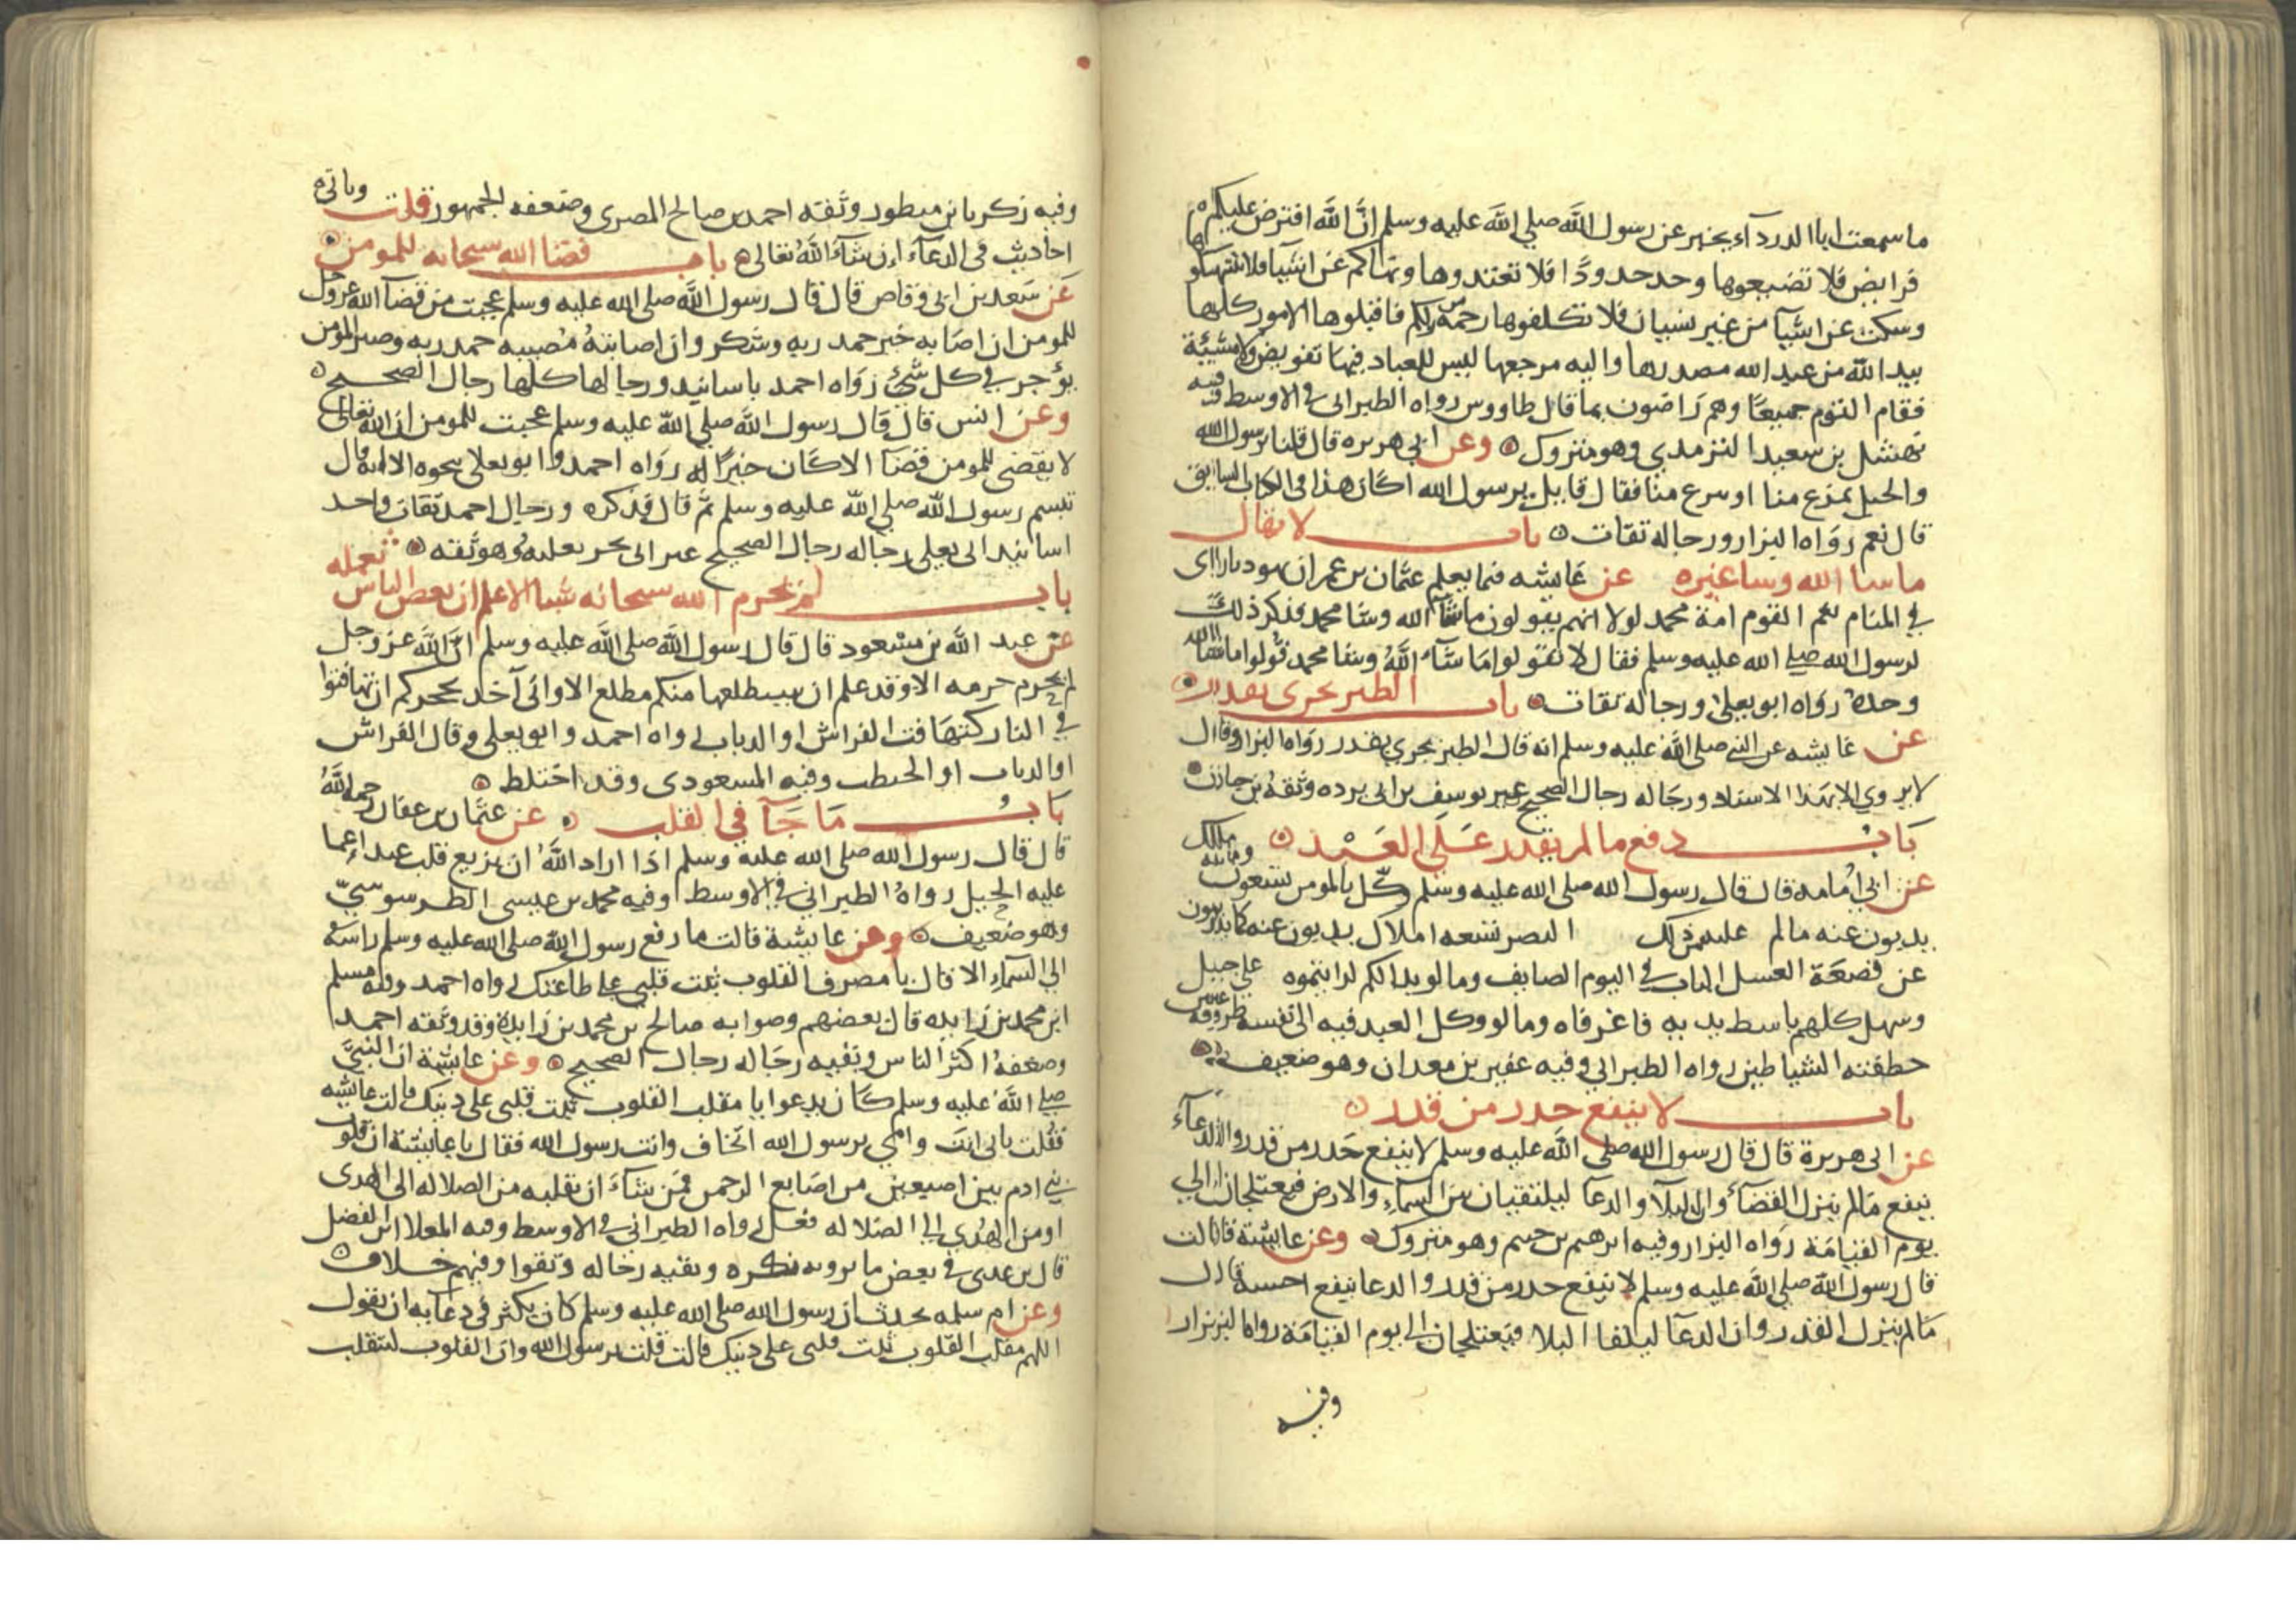 ما سمعت ابا الدرداء يخبر عن رسول الله صلي الله عليه وسلم ان الله افترض عليكم
فرايض فلا تضيعوها وحد حدودًا فلا تعتدوها ونهاكم عن اشيا فلا تنتهكوها
وسكت عن اشيا من غير نسيان فلا تكلفوها رحمة من ربكم فاقبلوها الامور كلها
بيد الله من عند الله مصدرها واليه مرجعها ليس للعباد فيها تفويض ولا مشيئة
فقام القوم جميعًا وهم راضون بما قال طاووس رواه الطبراني في الاوسط وفيه
نهشل بن سعيد الترمذي وهو متروك وعن ابي هريره قال قلنا يرسول الله
والحبل بمزع منا اوسرع منا فقال قايل يرسول الله اكان هذا في الكتاب السابق
قال نعم رواه البزار ورجاله ثقات باب لا يقال
ما شا الله وشا غيره عن عايشه فيما يعلم عثمان بن عمر ان يهوديا راى
في المنام نعم القوم امة محمد لولا انهم يقولون ما شا الله وشا محمد فذكر ذلك
لرسول الله صلي الله عليه وسلم فقال لا تقولوا ما شاء الله وشا محمد قولوا ما شا الله
وحده رواه ابو يعلي ورجاله ثقات باب الطير تجرى بقدر
عن عايشه عن النبي صلي الله عليه وسلم انه قال الطير تجري بقدر رواه البزار وقال
لا يروي الا بهذا الاسناد ورجاله رجال الصحيح غير يوسف بن ابي برده وثقه بن حبان
بَابُ دفع ما لم يقدر عَلَي العَبْد
عن ابي امامه قال قال رسول الله صلي الله عليه وسلم وكّل بالمومن تسعون وماية ملك
يذبون عنه مالم عليه من ذلك البصر تسعه املاك يذبون عنه كما يذبون
عن قصعة العسل الذباب في اليوم الصايف وما لو بدا لكم لرايتموه علي جبل
وسهل كلهم باسط يديه فاغر فاه وما لو وكل العبد فيه الي نفسه طرفة عين
خطفته الشياطين رواه الطبراني وفيه عفير بن معدان وهو ضعيف
باب لا ينفع حذر من قدر
عن ابي هريرة قال قال رسول الله صلي الله عليه وسلم لا ينفع حذر من قدر والدعآء
ينفع مالم ينزل القضآء وان البلآ والدعآ ليلتقيان بين السمآء والارض فيعتلجان الي
يوم القيامة رواه البزار وفيه ابرهيم بن خثيم وهو متروك وعن عايشة قالت
قال رسول الله صلي الله عليه وسلم لا ينفع حذر من قدر والدعا ينفع احسبه قال
مالم ينزل القدر وان الدعآ ليلقا البلا فيعتلجان الي يوم القيامة رواه البزار
وفيه
وفيه زكريا بن منظور وثقه احمد بن صالح المصري وضعفه الجمهور قلت وياتي
احاديث في الدعآء ان شآء الله تعالي باب قضا الله سبحانه للمومن
عن سعد بن ابي وقاص قال قال رسول الله صلي الله عليه وسلم عجبت من قضآ الله عز وجل
للمومن ان اصابه خير حمد ربه وشكر وان اصابته مصيبه حمد ربه وصبر المومن
يؤجر في كل شئ رواه احمد باسانيد ورجالها كلها رجال الصحيح
وعن انس قال قال رسول الله صلي الله عليه وسلم عجبت للمومن ان الله تعالي
لا يقضي للمومن قضا الا كان خيرًا له رواه احمد وابو يعلي بنحوه الا انه قال
تبسم رسول الله صلي الله عليه وسلم ثم قال فذكره ورجال احمد ثقات واحد
اسانيد ابي يعلي رجاله رجال الصحيح غير ابي بحر ثعلبه وهو ثقه
باب لم يحرم الله سبحانه شيا الا علم ان بعض الناس يفعله
عن عبد الله بن مسعود قال قال رسول الله صلي الله عليه وسلم ان الله عز وجل
لم يحرم حرمه الا وقد علم ان سيطلعها منكم مطلع الا واني آخذ بحجزكم ان تهافتوا
في النار كتهافت الفراش او الذباب رواه احمد وابو يعلي وقال الفراش
او الذباب او الحنطب وفيه المسعودي وقد اختلط
بَابُ مَا جَآ في القلب عن عثمان بن عفان رحمه الله
قال قال رسول الله صلي الله عليه وسلم اذا اراد الله ان يزيع قلب عبد اعما
عليه الحيل رواه الطبراني في الاوسط وفيه محمد بن عيسي الطرسوسيّ
وهو ضعيف وعن عايشة قالت ما رفع رسول الله صلي الله عليه وسلم راسه
الي السمآء الا قال يا مصرف القلوب ثبت قلبي علي طاعتك رواه احمد وفيه مسلم
ابن محمد بن زايده قال بعضهم وصوابه صالح بن محمد بن زايده وقد وثقه احمد
وضعفه اكثر الناس وبقيه رجاله رجال الصحيح وعن عايشة ان النبيّ
صلي الله عليه وسلم كان يدعوا يا مقلب القلوب ثبت قلبي علي دينك قالت عايشه
فقلت بابي انت وامي يرسول الله اتخاف وانت رسول الله فقال يا عايشة ان قلوب
بني ادم بين اصبعين من اصابع الرحمن فمن شآء ان يقلبه من الضلاله الي الهدى
او من الهدي الي الضلاله فعل رواه الطبراني في الاوسط وفيه المعلا ابن الفضل
قال بن عدي في بعض ما يرويه نكره وبقيه رجاله وثقوا وفيهم خلاف
وعن ام سلمه تحدث ان رسول الله صلي الله عليه وسلم كان يكثر في دعآيه ان يقول
اللهم مقلب القلوب ثبت قلبي علي دينك قالت قلت يرسول الله وان القلوب لتتقلب